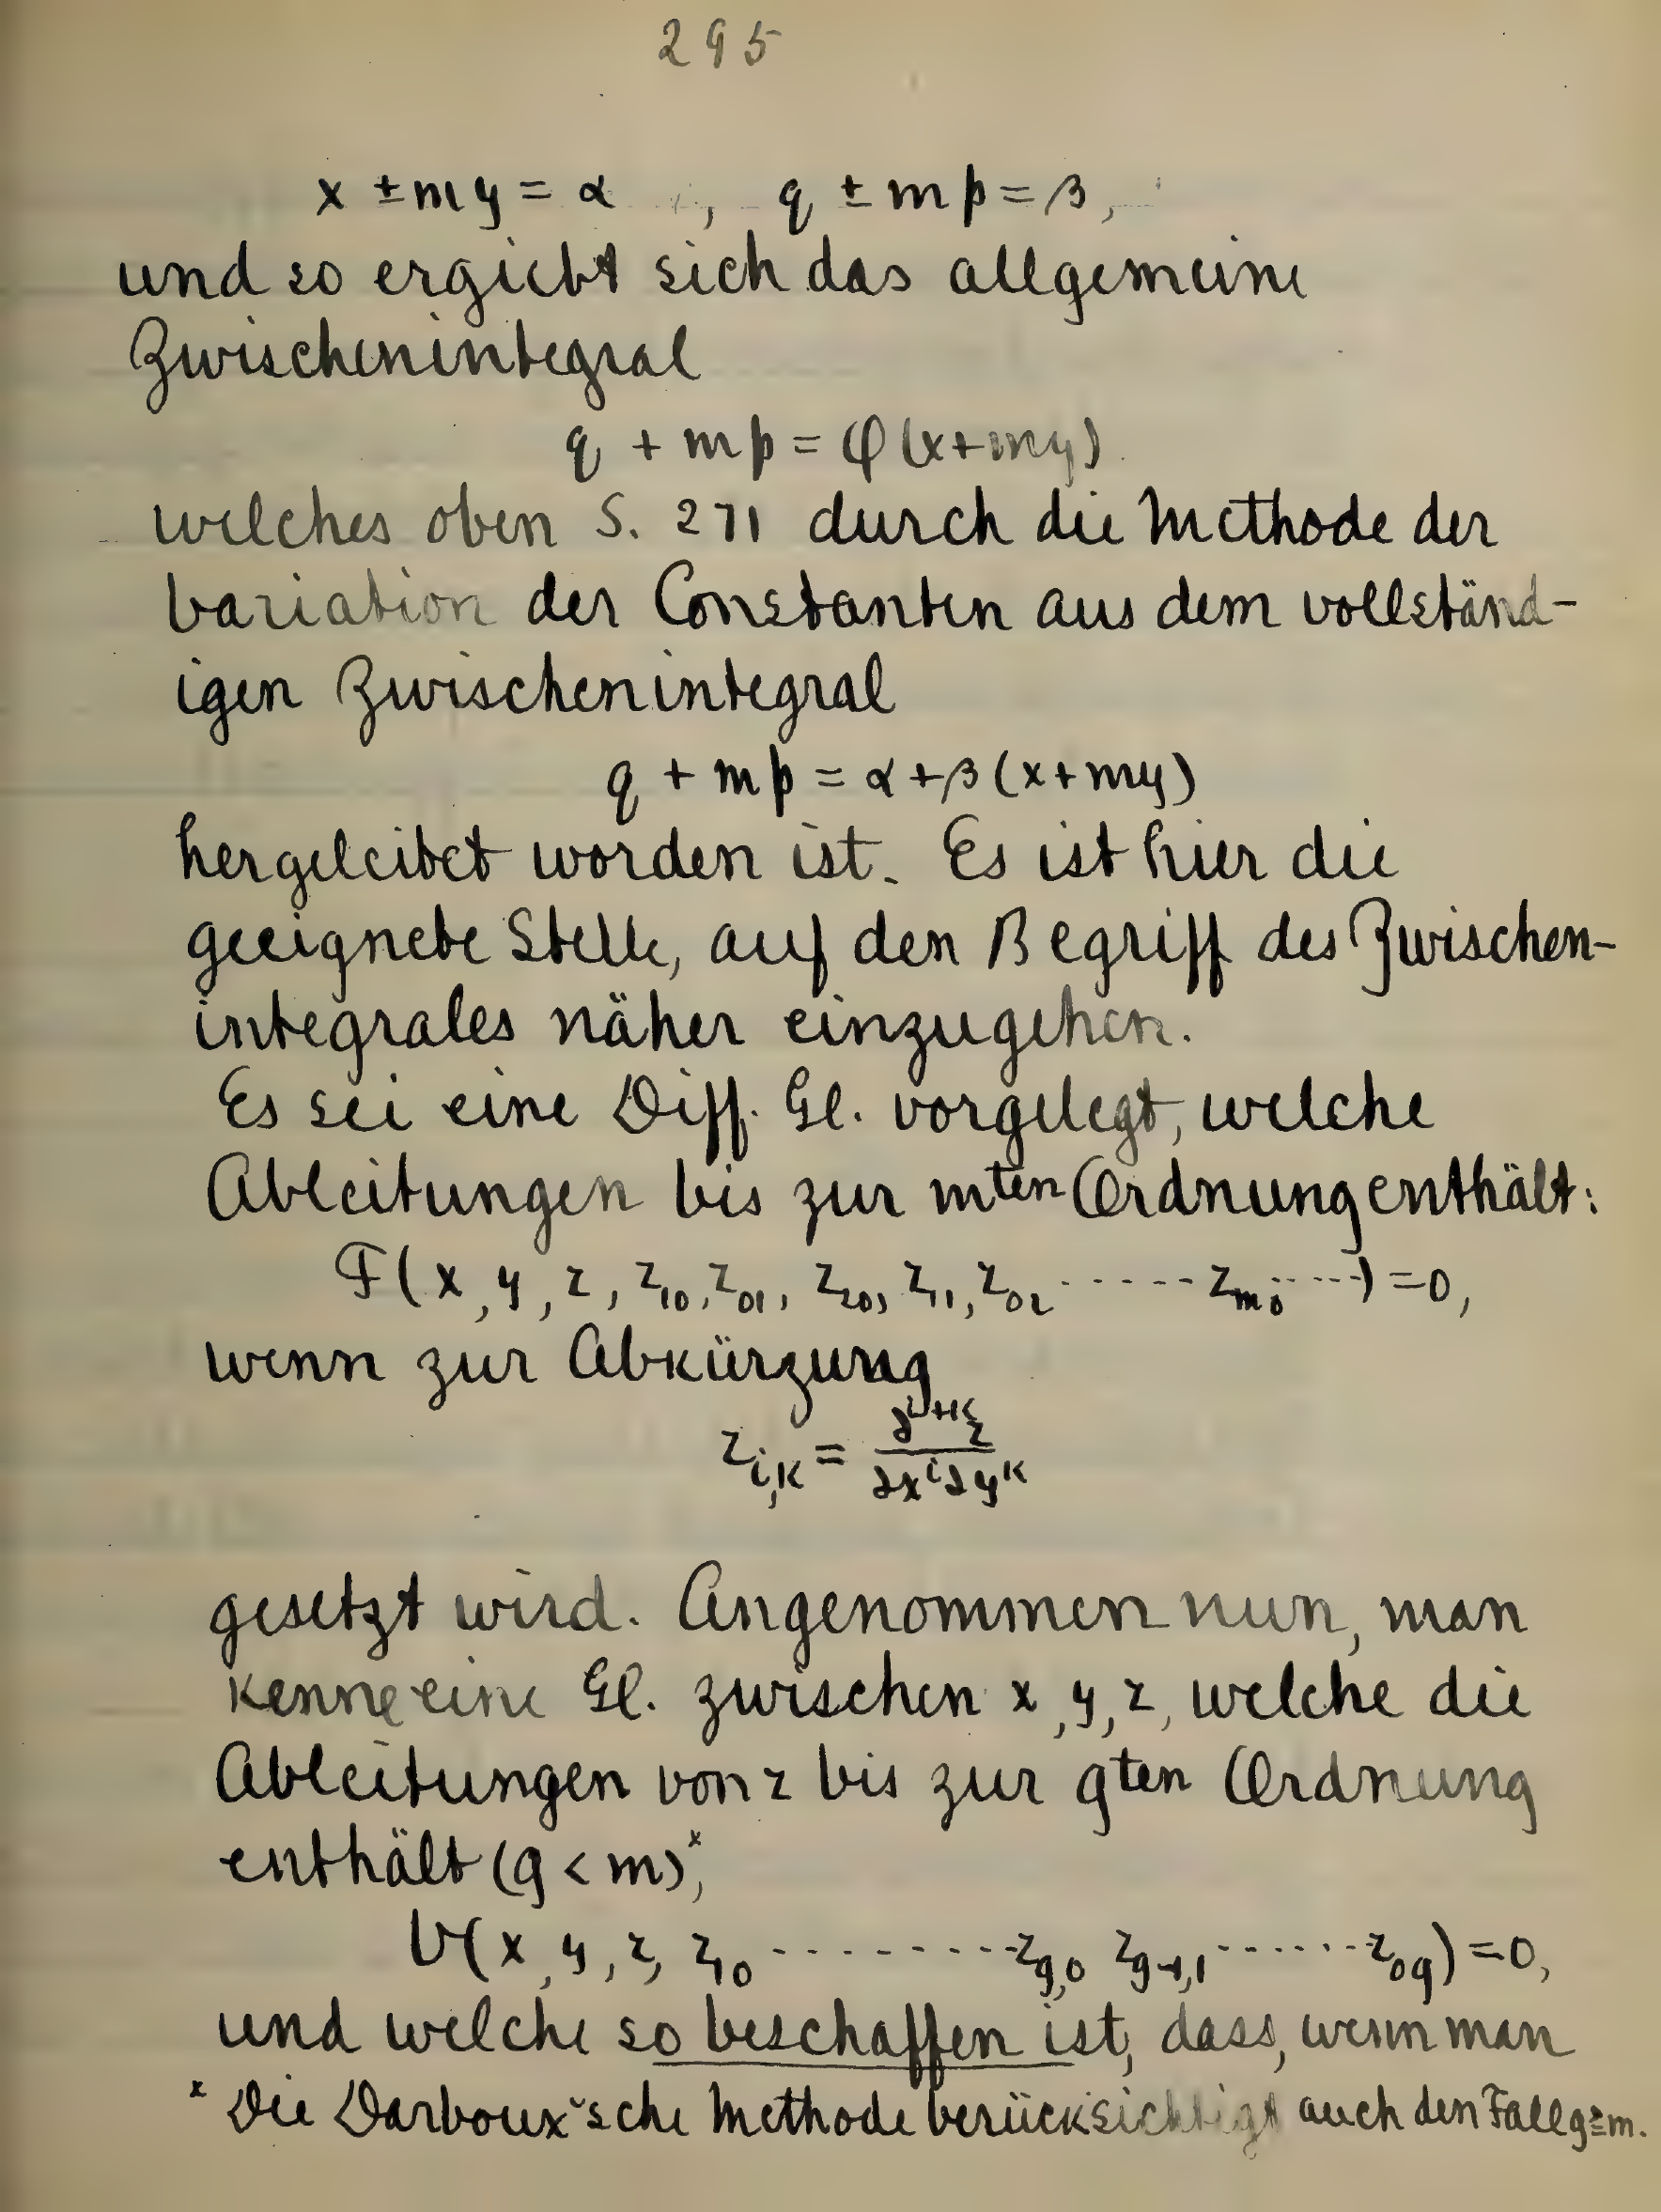 295
x ± my = α , q ± mp = β,
und so ergiebt sich das allgemeine
Zwischenintegral
q + mp = φ(x+my)
welches oben S. 271 durch die Methode der
Variation der Constanten aus dem vollständ-
igen Zwischenintegral
q + mp = α + β(x+my)
hergeleitet worden ist. Es ist hier die
geeignete Stelle, auf den Begriff des Zwischen-
integrales näher einzugehen.
Es sei eine Diff. Gl. vorgelegt, welche
Ableitungen bis zur mten Ordnung enthält:
F(x, y, z, z₁₀, z₀₁, z₂₀, z₁₁, z₀₂ ------ z_{m0} -----) = 0,
wenn zur Abkürzung
z_{i,k} = ∂^{i+k}z / ∂x^i ∂y^k
gesetzt wird. Angenommen nun, man
kenne eine Gl. zwischen x, y, z, welche die
Ableitungen von z bis zur gten Ordnung
enthält (g < m)ˣ,
V(x, y, z, z₁₀ --------- z_{g,0} z_{g-1,1} ------ z_{0g}) = 0,
und welche so beschaffen ist, dass, wenn man
ˣ Die Darboux'sche Methode berücksichtigt auch den Fall g ≥ m.